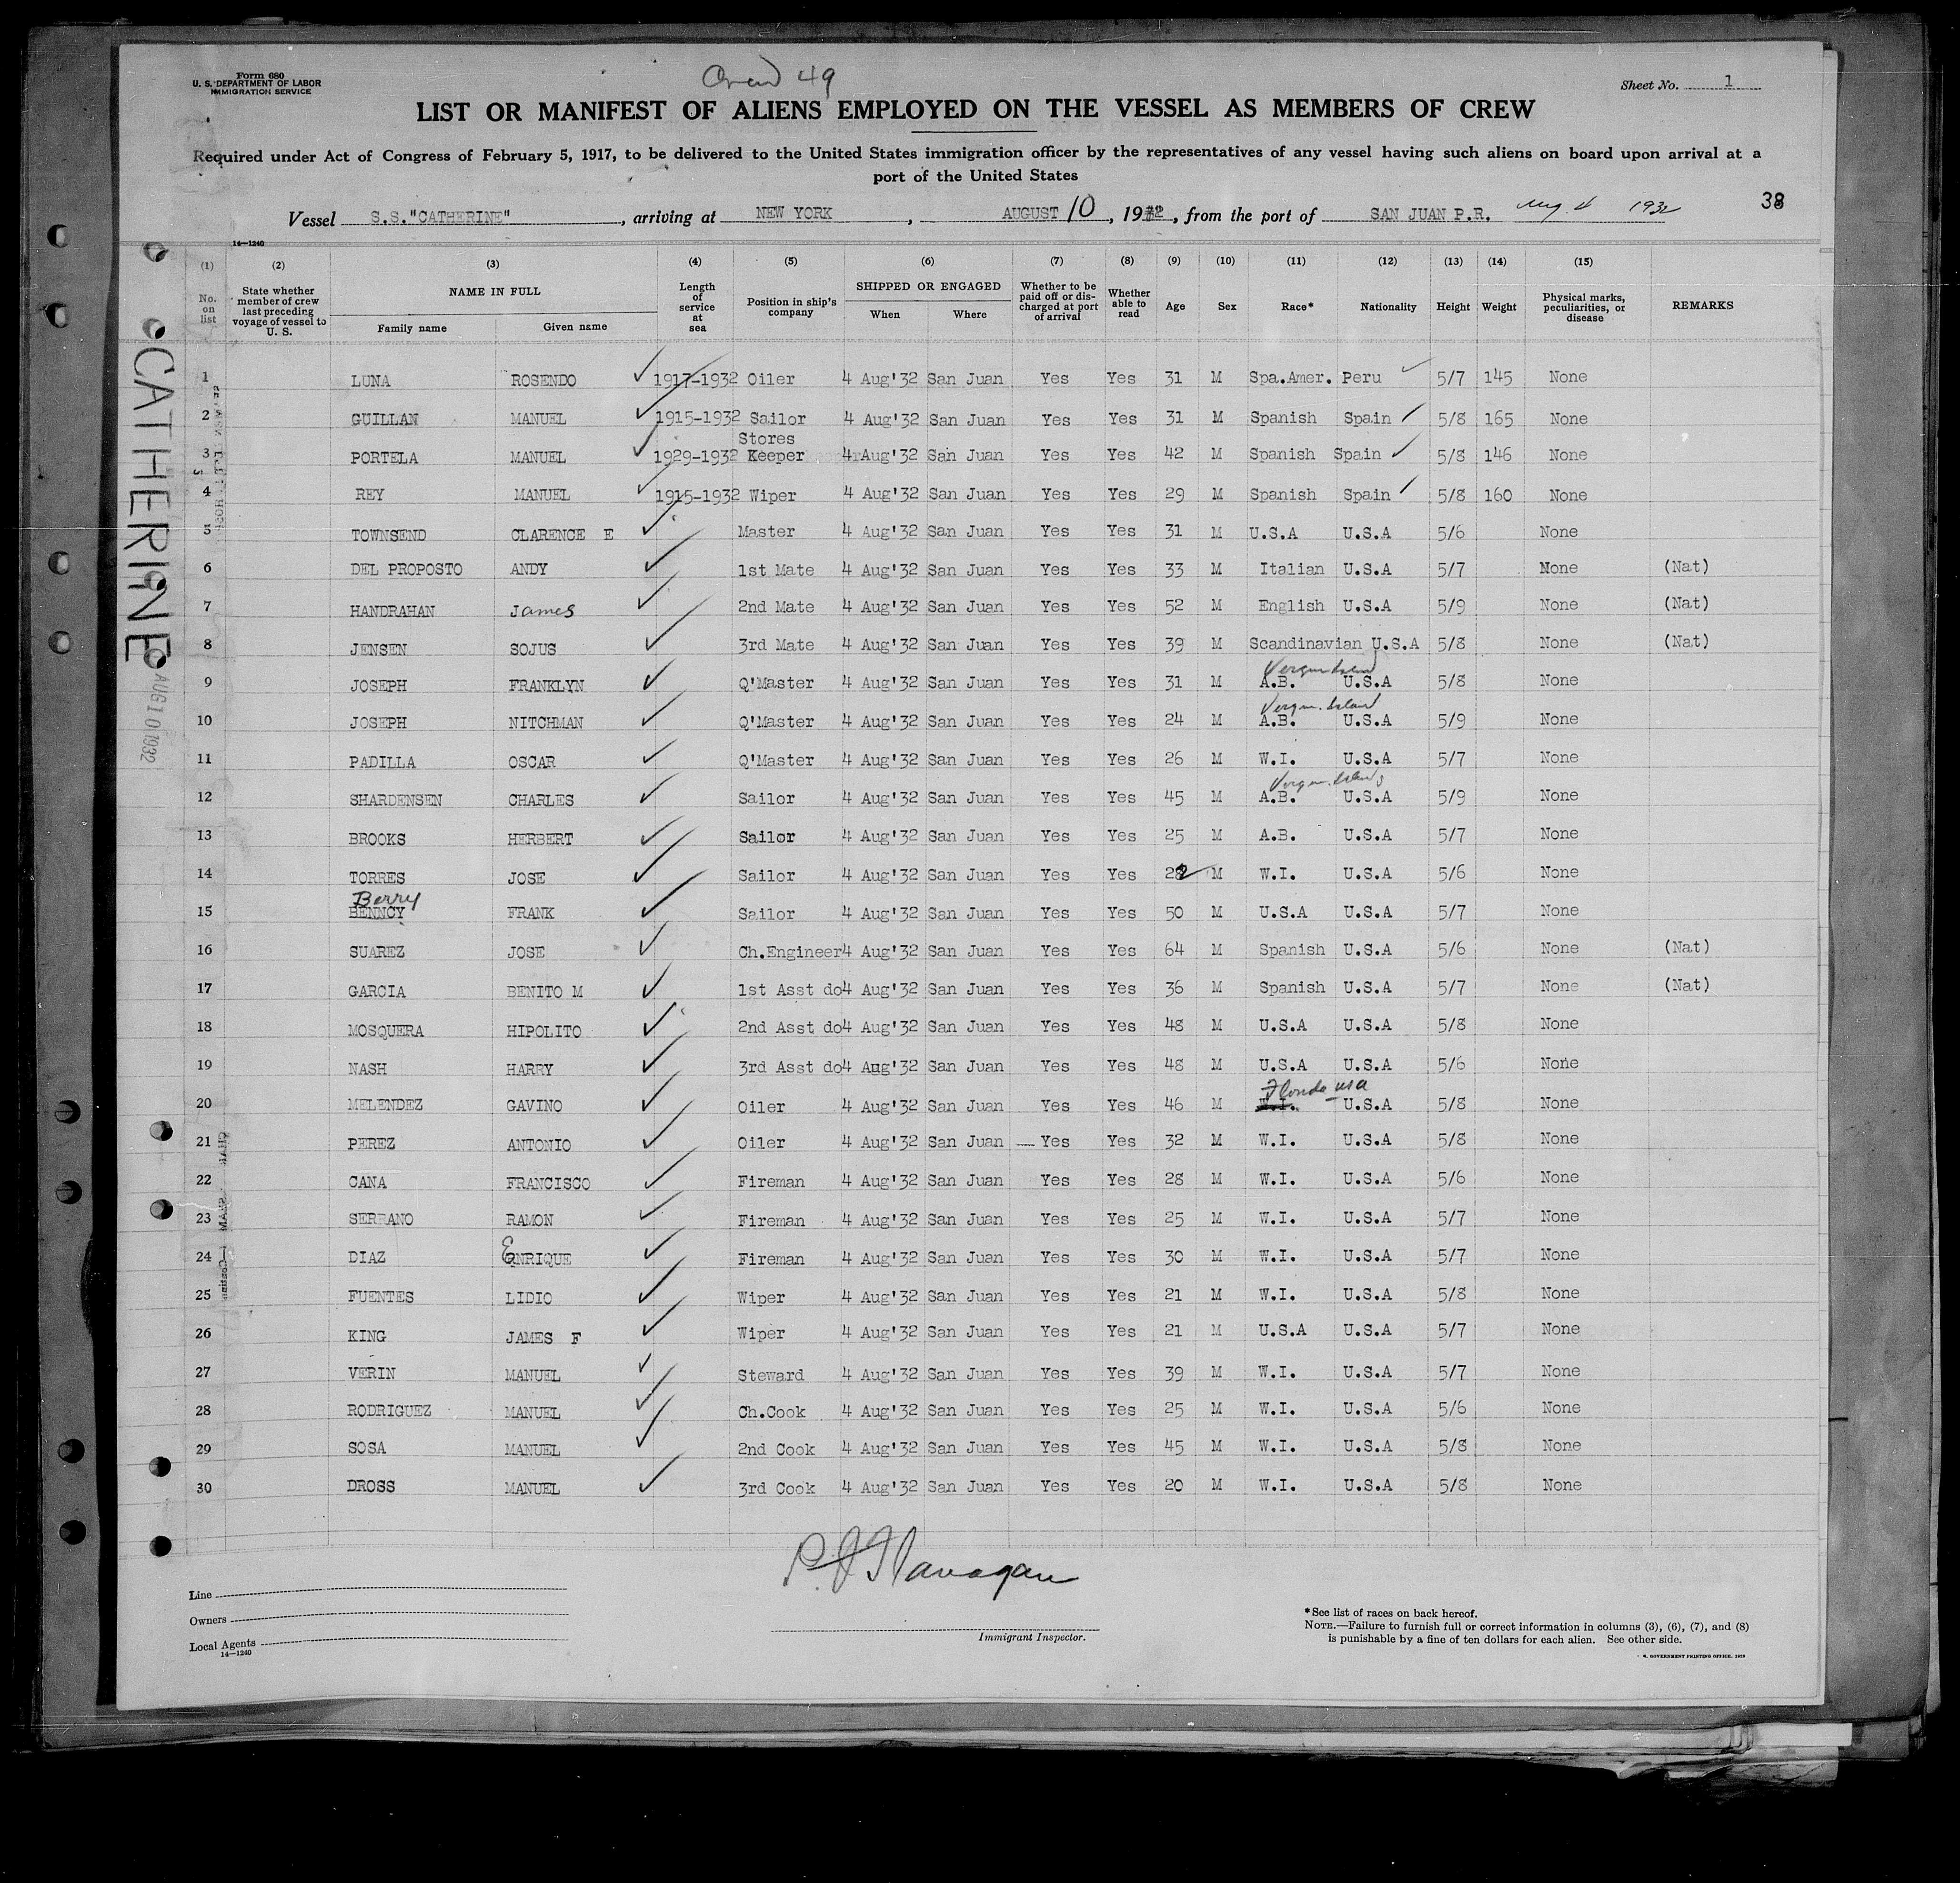 Form 680
U. S. DEPARTMENT OF LABOR
IMMIGRATION SERVICE
Crew 49
Sheet No. 1
LIST OR MANIFEST OF ALIENS EMPLOYED ON THE VESSEL AS MEMBERS OF CREW
Required under Act of Congress of February 5, 1917, to be delivered to the United States immigration officer by the representatives of any vessel having such aliens on board upon arrival at a
port of the United States
38
Vessel S.S."CATHERINE", arriving at NEW YORK, AUGUST 10, 1932, from the port of SAN JUAN P.R. Aug 4 1932
14—1240
(1) (2) (3) (4) (5) (6) (7) (8) (9) (10) (11) (12) (13) (14) (15)
No. on list
State whether member of crew last preceding voyage of vessel to U. S.
NAME IN FULL
Family name Given name
Length of service at sea
Position in ship's company
SHIPPED OR ENGAGED
When Where
Whether to be paid off or discharged at port of arrival
Whether able to read
Age Sex Race* Nationality Height Weight
Physical marks, peculiarities, or disease
REMARKS
1 LUNA ROSENDO 1917-1932 Oiler 4 Aug'32 San Juan Yes Yes 31 M Spa.Amer. Peru 5/7 145 None
2 GUILLAN MANUEL 1915-1932 Sailor 4 Aug'32 San Juan Yes Yes 31 M Spanish Spain 5/8 165 None
3 PORTELA MANUEL 1929-1932 Stores Keeper 4 Aug'32 San Juan Yes Yes 42 M Spanish Spain 5/8 146 None
4 REY MANUEL 1915-1932 Wiper 4 Aug'32 San Juan Yes Yes 29 M Spanish Spain 5/8 160 None
5 TOWNSEND CLARENCE E Master 4 Aug'32 San Juan Yes Yes 31 M U.S.A U.S.A 5/6 None
6 DEL PROPOSTO ANDY 1st Mate 4 Aug'32 San Juan Yes Yes 33 M Italian U.S.A 5/7 None (Nat)
7 HANDRAHAN James 2nd Mate 4 Aug'32 San Juan Yes Yes 52 M English U.S.A 5/9 None (Nat)
8 JENSEN SOJUS 3rd Mate 4 Aug'32 San Juan Yes Yes 39 M Scandinavian U.S.A 5/8 None (Nat)
Virgin Island
9 JOSEPH FRANKLYN Q'Master 4 Aug'32 San Juan Yes Yes 31 M A.B. U.S.A 5/8 None
Virgin Island
10 JOSEPH NITCHMAN Q'Master 4 Aug'32 San Juan Yes Yes 24 M A.B. U.S.A 5/9 None
11 PADILLA OSCAR Q'Master 4 Aug'32 San Juan Yes Yes 26 M W.I. U.S.A 5/7 None
Virgin Islands
12 SHARDENSEN CHARLES Sailor 4 Aug'32 San Juan Yes Yes 45 M A.B. U.S.A 5/9 None
13 BROOKS HERBERT Sailor 4 Aug'32 San Juan Yes Yes 25 M A.B. U.S.A 5/7 None
14 TORRES JOSE Sailor 4 Aug'32 San Juan Yes Yes 22 M W.I. U.S.A 5/6 None
Berry
15 BENNCY FRANK Sailor 4 Aug'32 San Juan Yes Yes 50 M U.S.A U.S.A 5/7 None
16 SUAREZ JOSE Ch.Engineer 4 Aug'32 San Juan Yes Yes 64 M Spanish U.S.A 5/6 None (Nat)
17 GARCIA BENITO M 1st Asst do 4 Aug'32 San Juan Yes Yes 36 M Spanish U.S.A 5/7 None (Nat)
18 MOSQUERA HIPOLITO 2nd Asst do 4 Aug'32 San Juan Yes Yes 48 M U.S.A U.S.A 5/8 None
19 NASH HARRY 3rd Asst do 4 Aug'32 San Juan Yes Yes 48 M U.S.A U.S.A 5/6 None
Florida usa
20 MELENDEZ GAVINO Oiler 4 Aug'32 San Juan Yes Yes 46 M W.I. U.S.A 5/8 None
21 PEREZ ANTONIO Oiler 4 Aug'32 San Juan Yes Yes 32 M W.I. U.S.A 5/8 None
22 CANA FRANCISCO Fireman 4 Aug'32 San Juan Yes Yes 28 M W.I. U.S.A 5/6 None
23 SERRANO RAMON Fireman 4 Aug'32 San Juan Yes Yes 25 M W.I. U.S.A 5/7 None
24 DIAZ ENRIQUE Fireman 4 Aug'32 San Juan Yes Yes 30 M W.I. U.S.A 5/7 None
25 FUENTES LIDIO Wiper 4 Aug'32 San Juan Yes Yes 21 M W.I. U.S.A 5/8 None
26 KING JAMES F Wiper 4 Aug'32 San Juan Yes Yes 21 M U.S.A U.S.A 5/7 None
27 VERIN MANUEL Steward 4 Aug'32 San Juan Yes Yes 39 M W.I. U.S.A 5/7 None
28 RODRIGUEZ MANUEL Ch.Cook 4 Aug'32 San Juan Yes Yes 25 M W.I. U.S.A 5/6 None
29 SOSA MANUEL 2nd Cook 4 Aug'32 San Juan Yes Yes 45 M W.I. U.S.A 5/8 None
30 DROSS MANUEL 3rd Cook 4 Aug'32 San Juan Yes Yes 20 M W.I. U.S.A 5/8 None
CATHERINE
AUG 10 1932
P. J Flanagan
Immigrant Inspector.
Line
Owners
Local Agents
14—1240
*See list of races on back hereof.
NOTE.—Failure to furnish full or correct information in columns (3), (6), (7), and (8)
is punishable by a fine of ten dollars for each alien. See other side.
GOVERNMENT PRINTING OFFICE